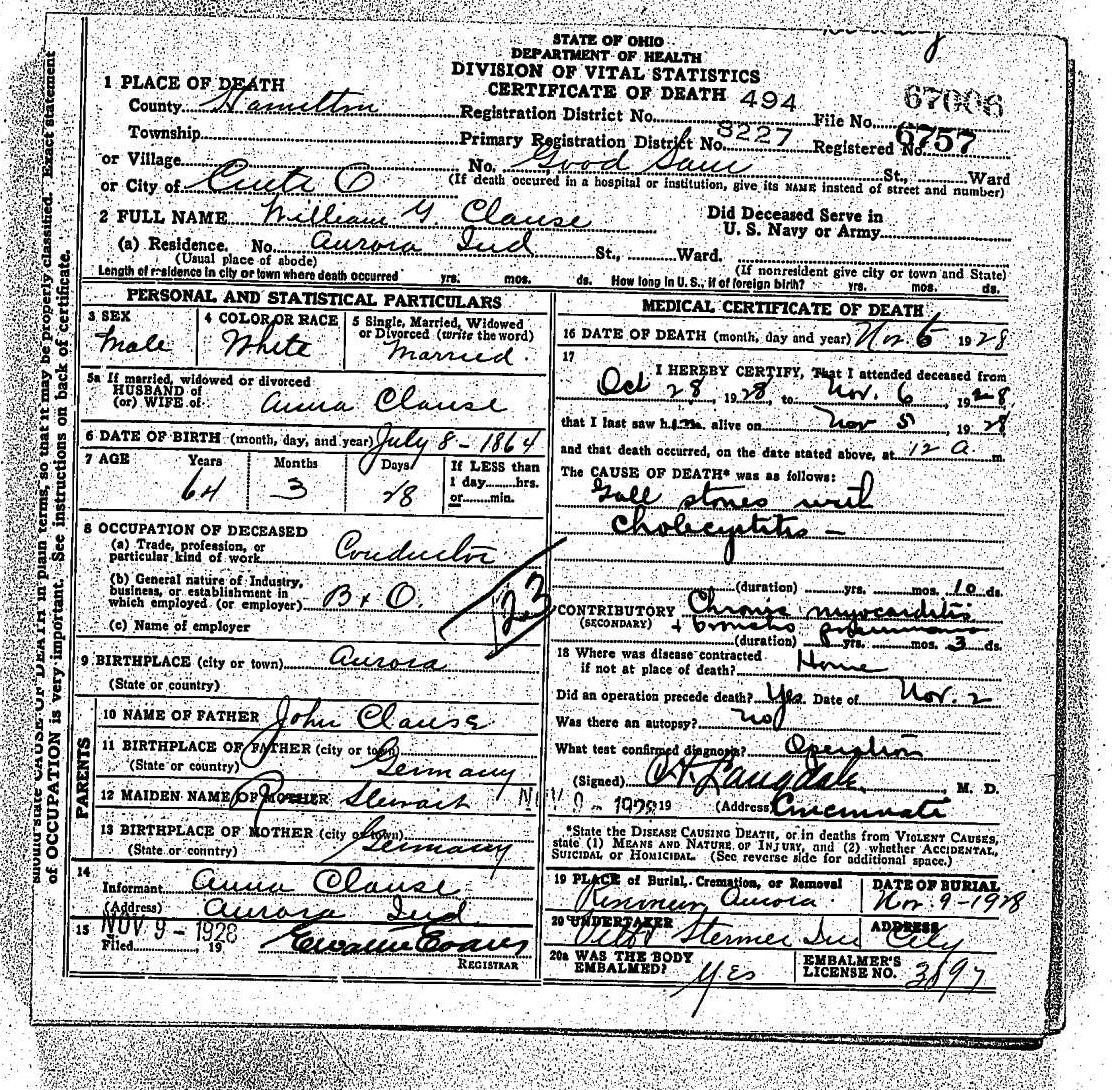 STATE OF OHIO
DEPARTMENT OF HEALTH
DIVISION OF VITAL STATISTICS
CERTIFICATE OF DEATH
1 PLACE OF DEATH
County Hamilton
Registration District No. 494 File No. 67006
Township
Primary Registration District No. 8227 Registered No. 6757
or Village
No. Good Sam St., Ward
or City of O
(If death occured in a hospital or institution, give its NAME instead of street and number)
2 FULL NAME William G Clause
Did Deceased Serve in
U. S. Navy or Army
(a) Residence. No. Aurora Ind St., Ward.
(Usual place of abode) (If nonresident give city or town and State)
Length of residence in city or town where death occurred yrs. mos. ds. How long in U. S., if of foreign birth? yrs. mos. ds.
PERSONAL AND STATISTICAL PARTICULARS
3 SEX
Male
4 COLOR OR RACE
White
5 Single, Married, Widowed
or Divorced (write the word)
Married.
5a If married, widowed or divorced
HUSBAND of
(or) WIFE of Anna Clause
6 DATE OF BIRTH (month, day, and year) July 8-1864
7 AGE Years Months Days If LESS than
1 day hrs.
or min.
64 3 28
8 OCCUPATION OF DECEASED
(a) Trade, profession, or
particular kind of work Conductor
(b) General nature of Industry,
business, or establishment in
which employed (or employer) B + O.
(c) Name of employer
123
9 BIRTHPLACE (city or town) Aurora
(State or country)
PARENTS
10 NAME OF FATHER John Clause
11 BIRTHPLACE OF FATHER (city or town)
(State or country) Germany
12 MAIDEN NAME OF MOTHER Stewart
13 BIRTHPLACE OF MOTHER (city or town)
(State or country) Germany
14
Informant Anna Clause
(Address) Aurora Ind
15 NOV 9 - 1928
Filed 19
REGISTRAR
MEDICAL CERTIFICATE OF DEATH
16 DATE OF DEATH (month, day and year) Nov. 6 1928
17
I HEREBY CERTIFY, That I attended deceased from
Oct 28, 1928, to Nov. 6, 1928
that I last saw him alive on Nov 5, 1928
and that death occurred, on the date stated above, at 12 a m.
The CAUSE OF DEATH* was as follows:
Gall stones with
cholecystitis -
(duration) yrs. mos. 10 ds.
CONTRIBUTORY Chronic myocarditis
(SECONDARY) + broncho pneumonia
(duration) yrs. mos. 3 ds.
18 Where was disease contracted
if not at place of death? Home
Did an operation precede death? Yes. Date of Nov. 2
Was there an autopsy? no
What test confirmed diagnosis? Operation
(Signed) Langdale, M. D.
NOV 9 - 1928 19 (Address) Cincinnati
*State the DISEASE CAUSING DEATH, or in deaths from VIOLENT CAUSES,
state (1) MEANS AND NATURE OF INJURY, and (2) whether ACCIDENTAL,
SUICIDAL or HOMICIDAL. (See reverse side for additional space.)
19 PLACE of Burial, Cremation, or Removal
Aurora.
DATE OF BURIAL
Nov. 9-1928
20 UNDERTAKER
ADDRESS
City
20a WAS THE BODY
EMBALMED? Yes
EMBALMER'S
LICENSE NO. 3897
should state CAUSE OF DEATH in plain terms, so that it may be properly classified. Exact statement
of OCCUPATION is very important. See instructions on back of certificate.